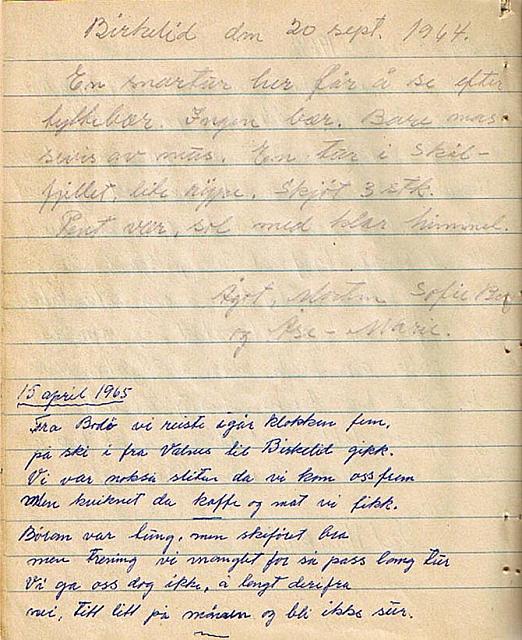 Birkelid den 20 sept. 1964.
En snartur her får å se efter
tyttebær. Ingen bær. Bare mas-
sevis av mus. En tur i Skål-
fjellet, lite rype. Skjøt 3 stk.
Pent vær, sol med klar himmel.
Ågot, Morten Sofie
og Åse-Marie.
15 april 1965
Fra Bodø vi reiste igår klokken fem,
på ski i fra Valnes til Birkelid gikk.
Vi var nokså slitne da vi kom oss frem
Men kviknet da kaffe og mat vi fikk.
Børen var tung, men skiføret bra
men trening vi manglet for så pass lang tur
Vi ga oss dog ikke, å langt derifra
nei, titt litt på månen og bli ikke sur.